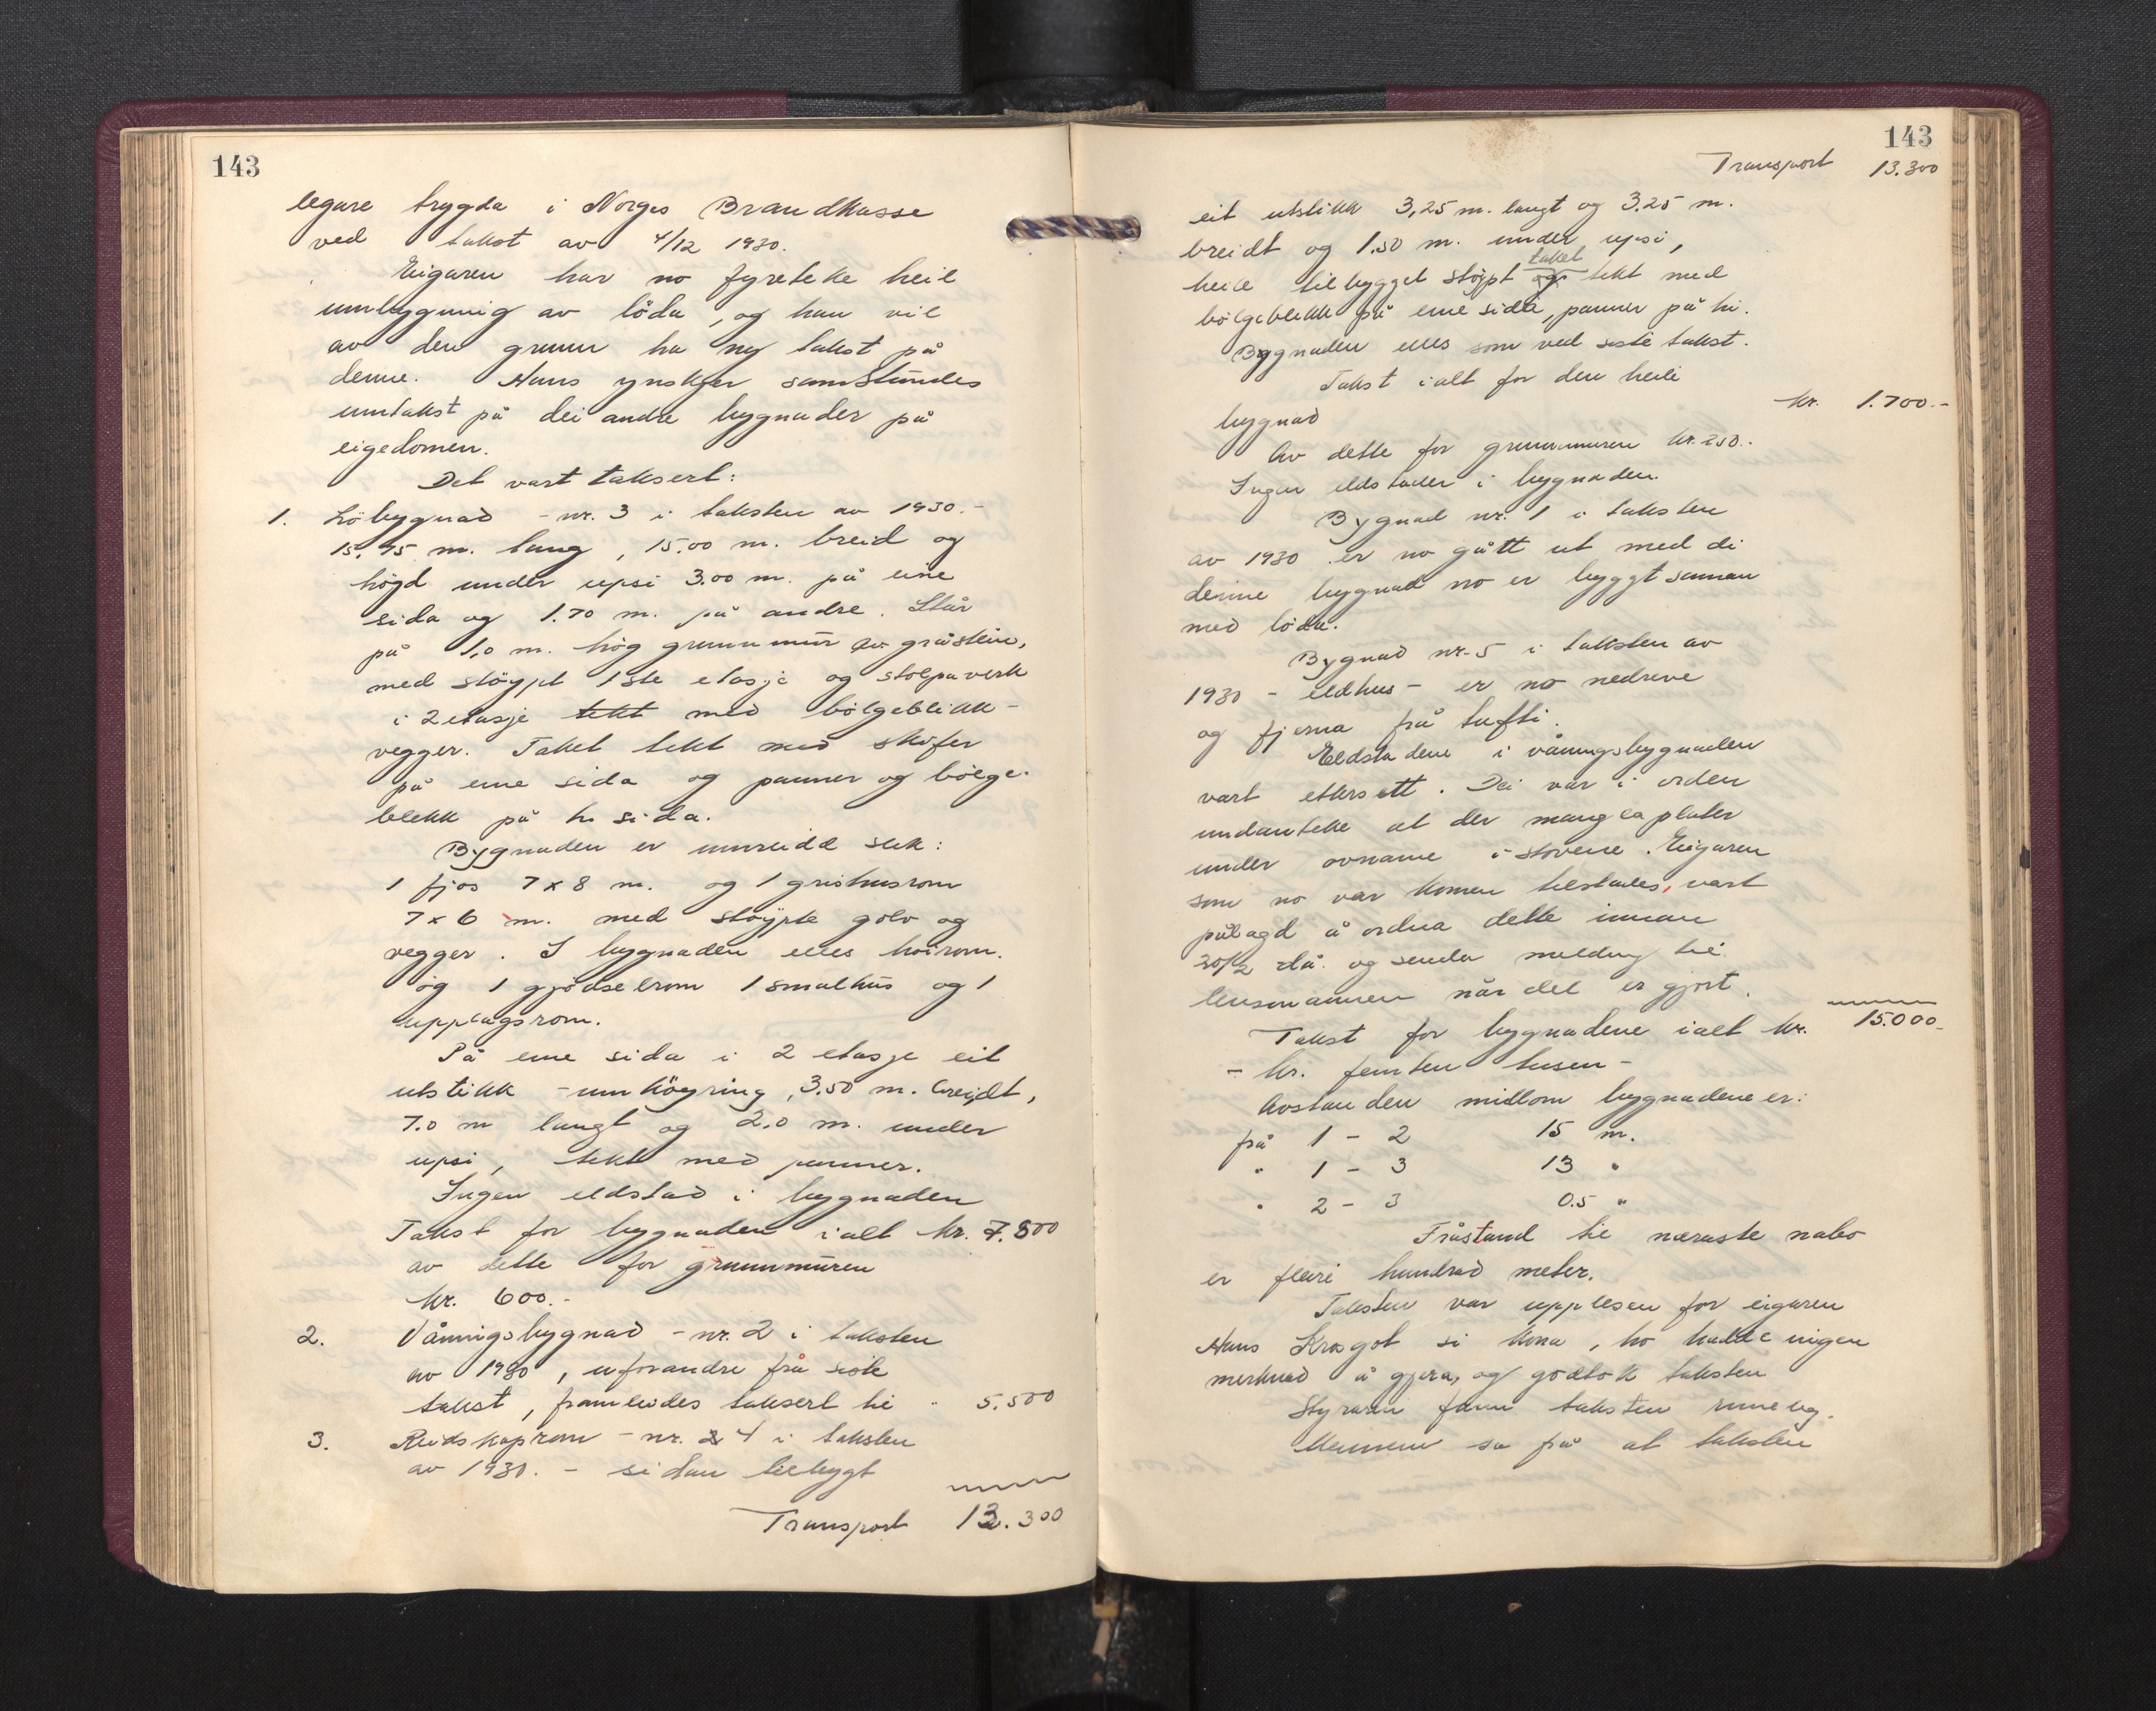 143
legare trygda i Norges Brandkasse
ved takst av 4/12 1930.
Eigaren har no fyreteke heil
umbygging av löda, og han vil
av den grunn ha ny takst på
denne. Hans ynskjer samstundes
umtakst på dei andre bygnader på
eigedomen.
Det vart taksert:
1. Löbygnad - nr. 3 i taksten av 1930.-
15,75 m. lang, 15,00 m. breid og
högd under upsi 3.00 m. på eine
sida og 1.70 m. på andre. Står
på 1,0 m. hög grunnmur av gråstein,
med stöypt 1ste etasje og stolpaverk
i 2 etasje tekt med bölgeblikk-
vegger. Taket tekt med skifer
på eine sida og panner og bölge-
blekk på hi sida.
Bygnaden er innreidd slik:
1 fjos 7 x 8 m. og 1 grishusrom
7 x 6 m. med stöypte golv og
vegger. I bygnaden elles hoirom.
og 1 gjödselrom 1 smalhus og 1
upplagsrom.
På eine sida i 2 etasje eit
utstikk - innköyring, 3.50 m. breidt,
7.0 m langt og 2.0 m. under
upsi, tekt med panner.
Ingen eldstad i bygnaden
Takst for bygnaden ialt kr. 7.800
av dette for grunnmuren
kr. 600.-
2. Våningsbygnad - nr. 2 i taksten
av 1930, uforandre frå siste
takst, framleides taksert til " 5.500
3. Reidskaprom - nr. 4 i taksten
av 1930. - sidan tilbygt
Transport 13.300
143
Transport 13.300
eit utstikk 3,25 m. langt og 3.25 m.
breidt og 1.50 m. under upsi,
taket
heile tilbygget stöypt og tekt med
bölgeblekk på eine sida, panner på hi.
Bygnaden elles som ved siste takst.
Takst ialt for den heile
bygnad kr. 1.700.-
Av dette for grunnmuren kr. 250.-
Ingen eldstader i bygnaden.
Bygnad nr. 1 i taksten
av 1930 er no gått ut med di
denne bygnad no er byggt saman
med löda.
Bygnad nr. 5 i taksten av
1930 - eldhus - er no nedreve
og fjerna frå tufti.
Eldstadene i våningsbygnaden
vart ettersett. Dei var i orden
undanteke at der mangla plater
under ovnane i stovene. Eigaren
som no var komen tilstades, vart
pålagd å ordna dette innan
30/12 då. og senda melding til
lensmannen når det er gjort.
Takst for bygnadene ialt kr. 15.000.-
- kr. femten tusen -
Avstanden millom bygnadene er:
frå 1 - 2 15 m.
" 1 - 3 13 "
" 2 - 3 0.5 "
Fråstand til næraste nabo
er fleiri hundrad meter.
Taksten var upplesen for eigaren
Hans Krosgot si kona, ho hadde ingen
merknad å gjera, og godtok taksten
Styraren fann taksten rimeleg.
Mennene sa frå at taksten